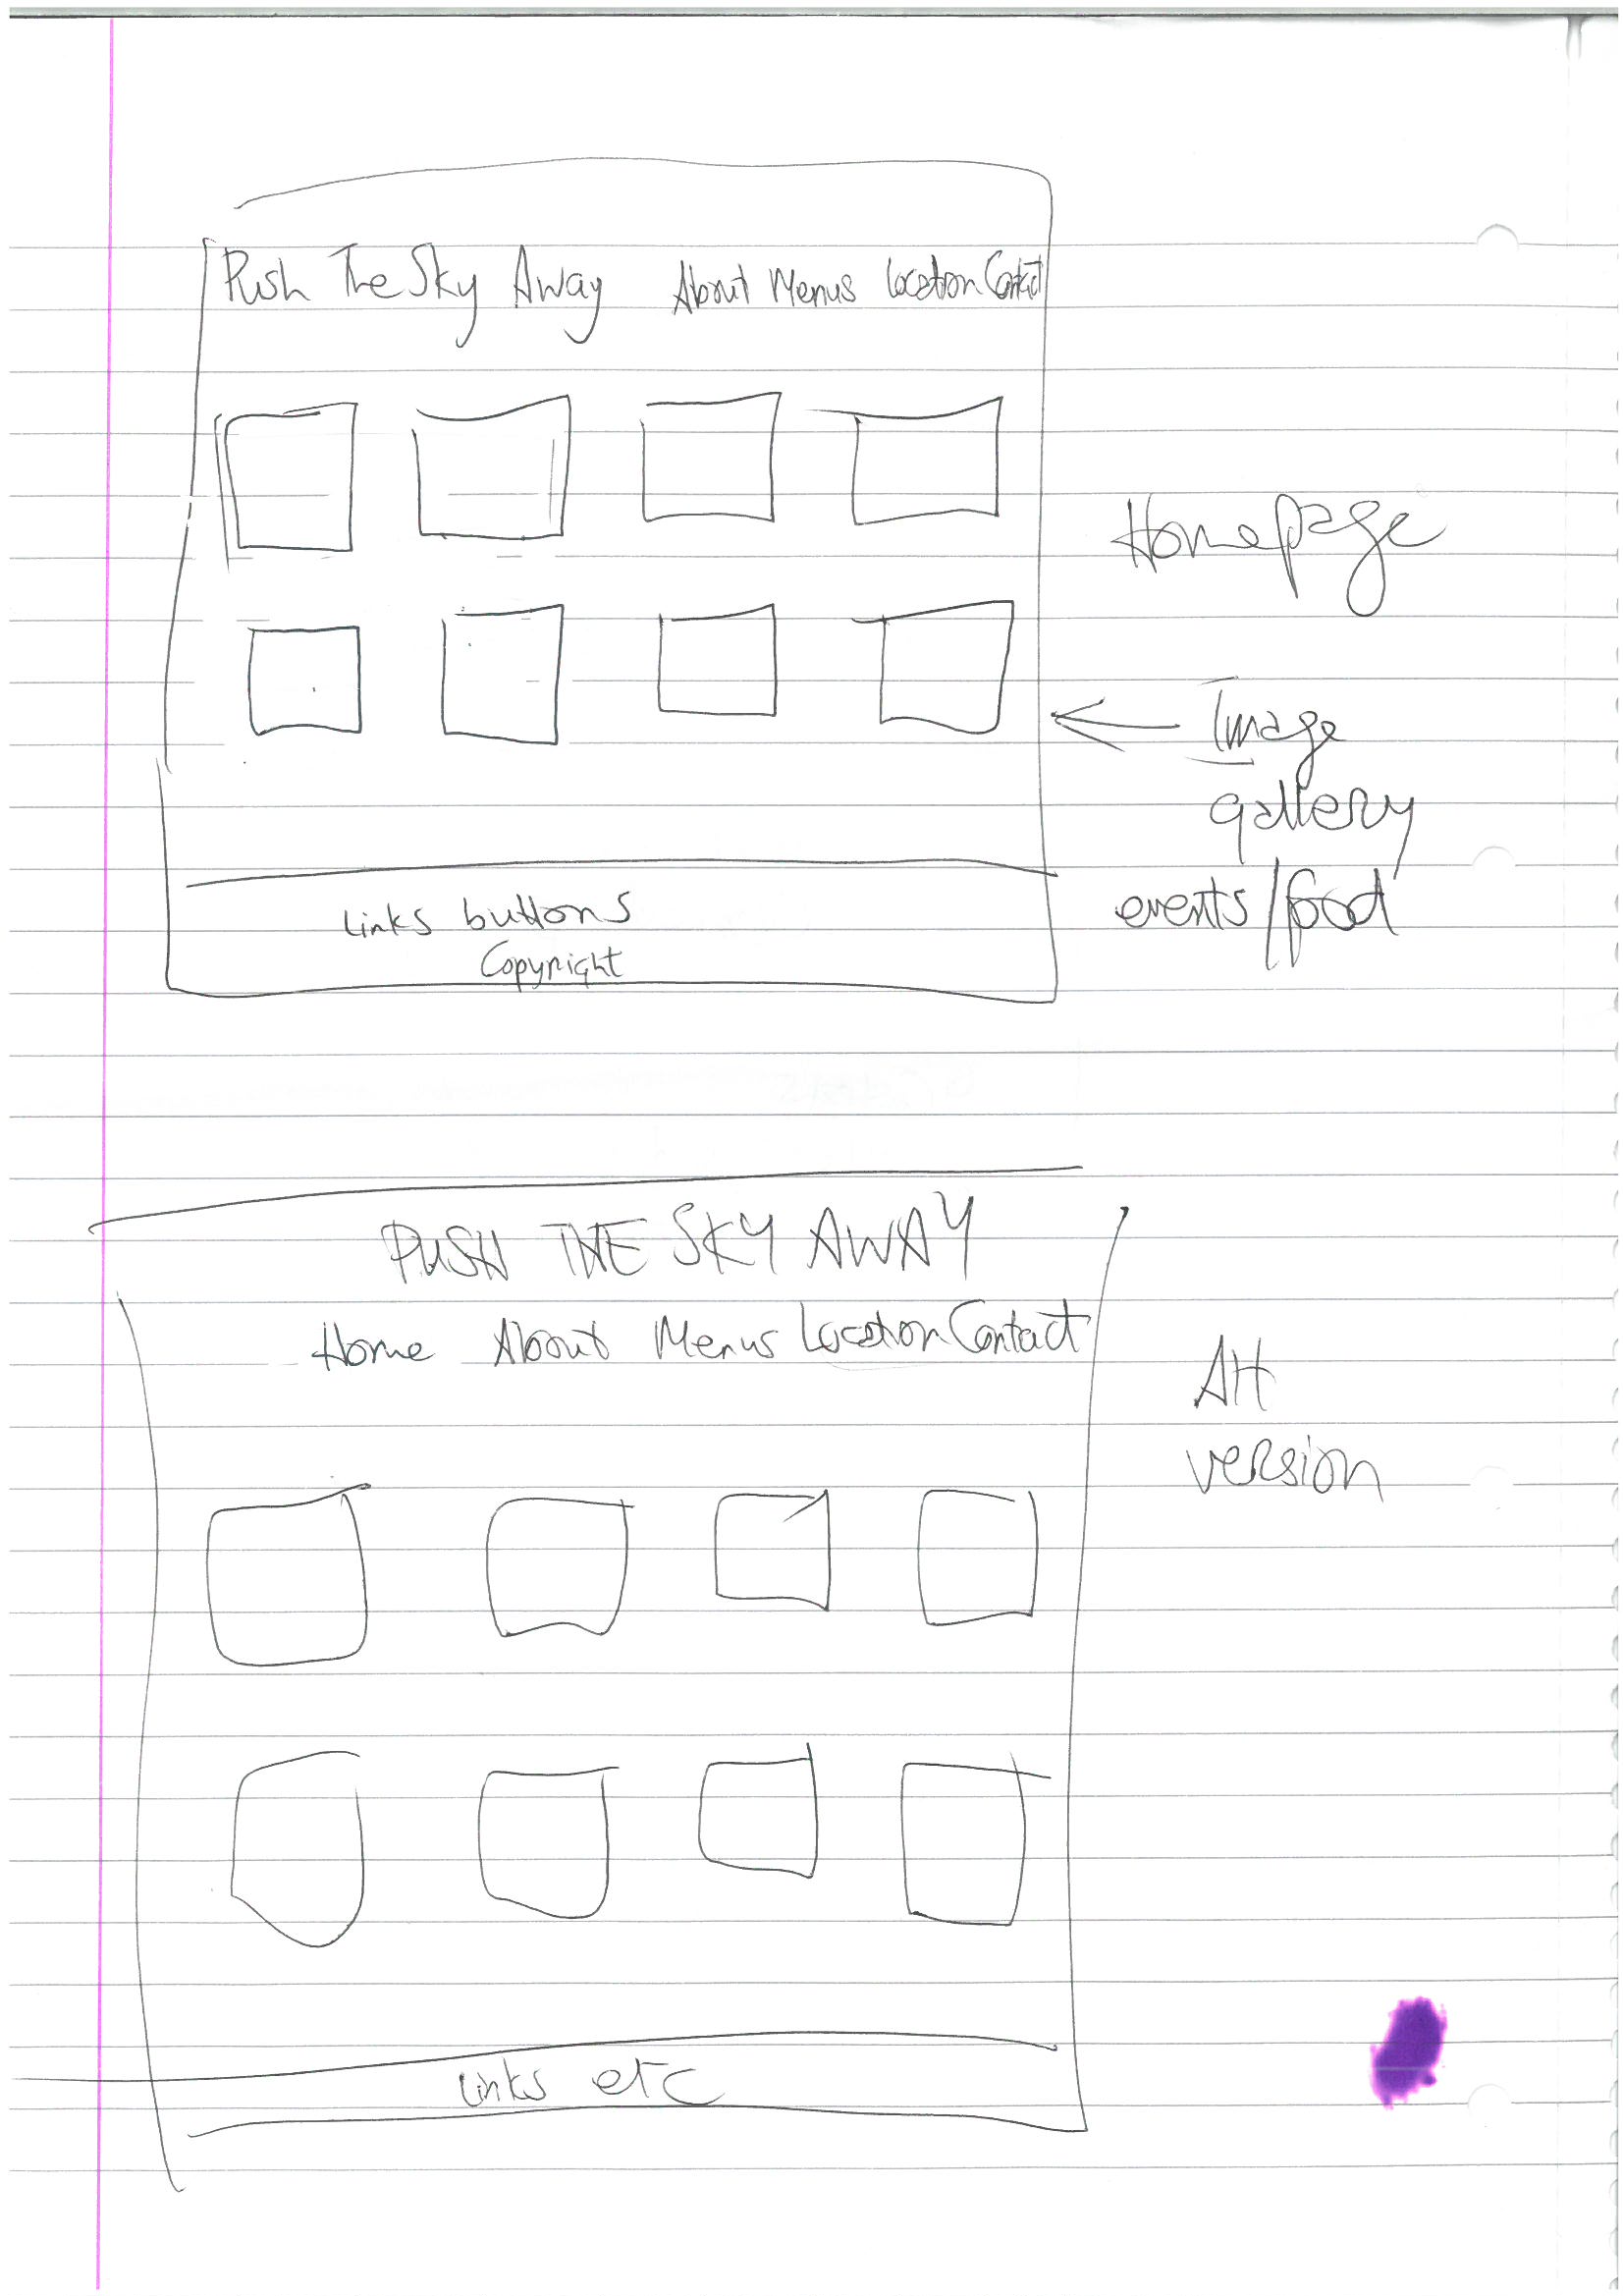 Push The Sky Away About Menus Location Contact
Homepage
Image
gallery
events/food
Links buttons
Copyright
PUSH THE SKY AWAY
Home About Menus Location Contact
Alt
version
Links etc